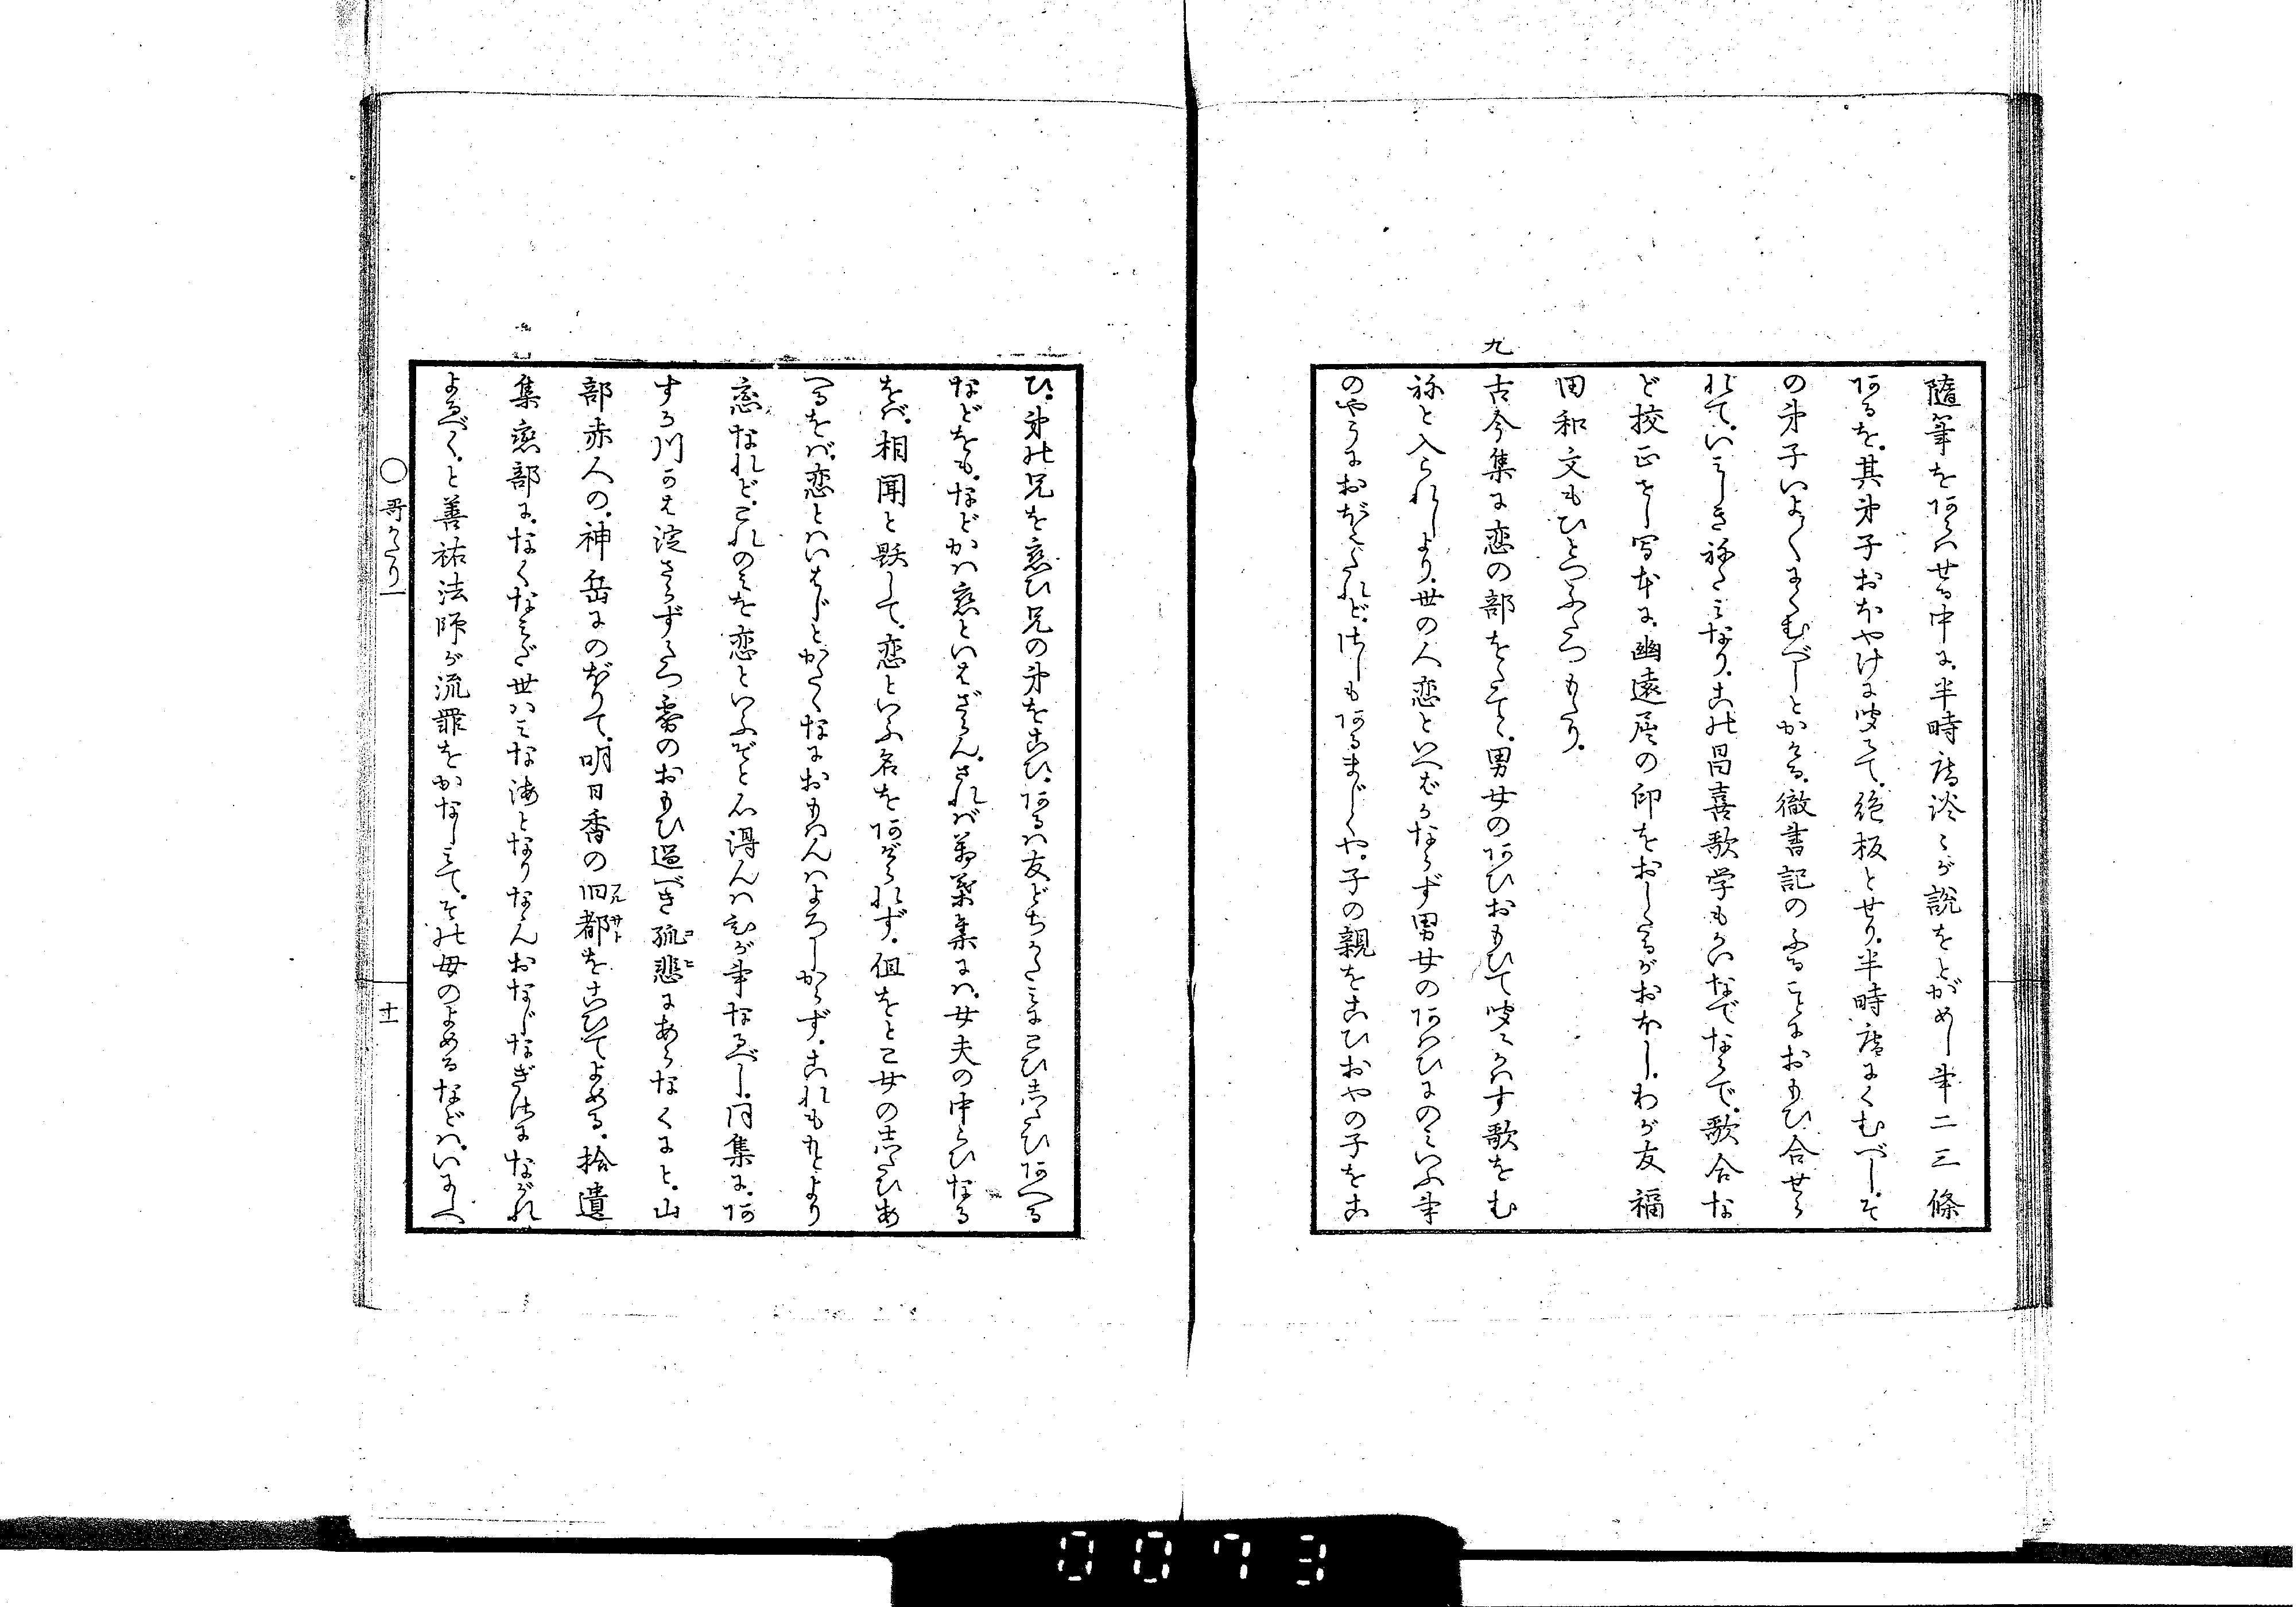 隨筆をあらはせる中に。半時庵淡々が説をとがめし事二三條
あるを。其弟子おほやけに聞えて。絶板とせり。半時庵にくむべし。そ
の弟子いよ〳〵にくむべしとかける。徹書記のふることにおもひ合せら
れて。いみじきねたみなり。この昌喜歌学もかいなでならで。歌合な
ど挍正をし写本に。幽遠居の印をおしたるがおほし。わが友福
田和文もひとつふたつもたり。
九
古今集に恋の部をたてゝ。男女のあひおもひて聞えかはす歌をむ
ねと入られしより。世の人恋といへばかならず男女のあはひにのみいふ事
のやうにおぼえたれど。はしもあるまじくや。子の親をこひおやの子をこ
ひ。弟の兄を恋ひ兄の弟をこひ。あるは友どちかたみにこひしたひあへる
などをも。などかは恋といはざらん。されば萬葉集には。女夫の中らひなる
をば。相聞と題して。恋といふ名をあげられず。但をとこ女のしたひあ
へるをば。恋とはいはじとかたくなにおもはんはよろしからず。これももとより
恋なれど。これのみを恋といふぞと心得んはひが事なるべし。同集に。あ
すか川かは淀さらずたつ霧のおもひ過べき孤悲にあらなくにと。山
部赤人の。神岳にのぼりて。明日香の旧都をこひてよめる。拾遺
集恋部に。なくなみだ世はみな海となりなゝんおなじなぎさにながれ
よるべく。と善祐法師が流罪をかなしみて。その母のよめるなどは。いにしへ
〇哥かたり一
十一
0073